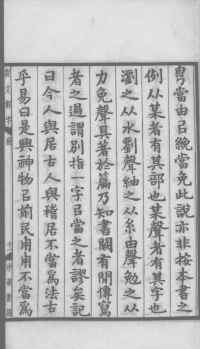 粤當由㠯統當免此說亦非按本書之
例从某者有其部也某聲者有其字也
瀏之从水劉聲紬之从糸由聲勉之从
力免聲具著於篇乃知書闕有閒傳寫
者之過謂別指一字㠯當之者謬矣記
曰今人與居古人與稽居不當爲法古
乎易曰是興神物㠯前民用用不當爲